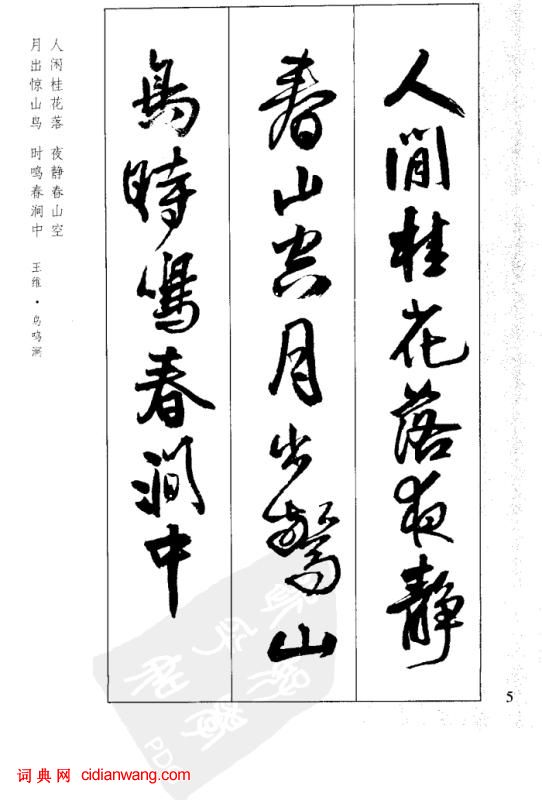 人閒桂花落夜静
春山空月出驚山
鳥時鳴春澗中
人闲桂花落 夜静春山空
月出惊山鸟 时鸣春涧中
王维·鸟鸣涧
5
词典网 cidianwang.com